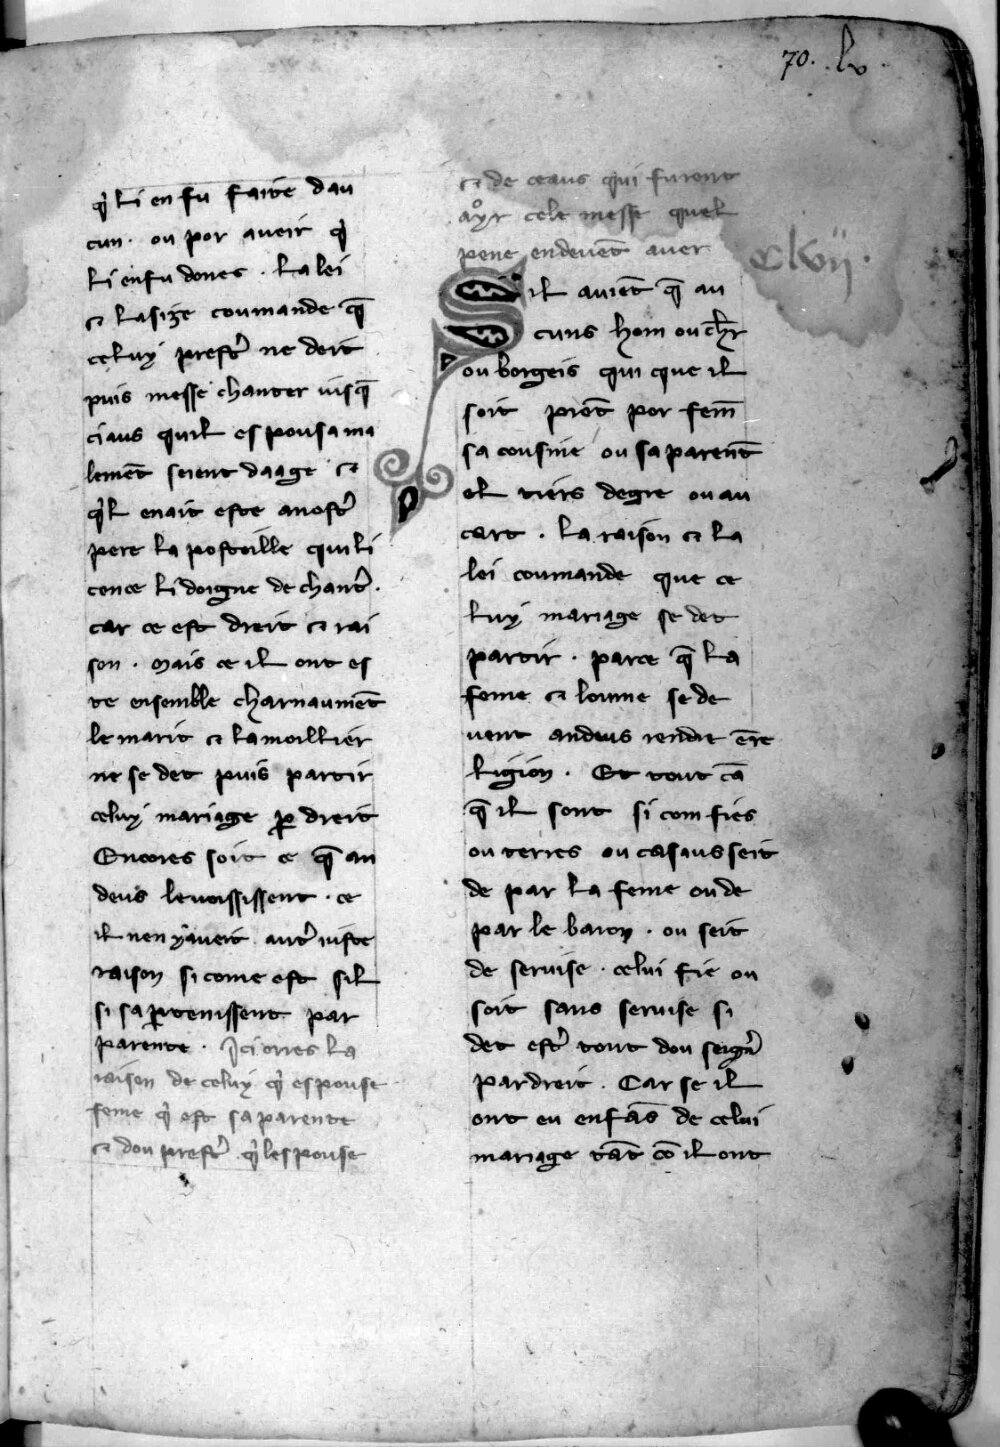 70. lv
q̉ li en fu faite dau
cun · ou por aueir q̉
li enfu dones · La lei
⁊ lasize coumande q̄
celuy prestr̉ ne deit
puis messe chanter iusq̄
ciaus quil espousa ma
lemēt seient daage ⁊
q̉l enait este anostr̉
pere lapostoille qui li
cence li doigne de chantr̉ ·
car ce est dreit ⁊ rai
son · Mais ce il ont es
te ensemble charnaumēt
le marit ⁊ lamoillier
ne se det puis partir
celuy mariage ꝑ dreit
Encores soit ce q̄ an
deus leuoississent · ce
il nen yaueit autr̉ iuste
raison si come est sil
si sapꝑtenissent par
parente · Ici orres la
raison de celuy q̉ espouse
feme q̉ est sa parente
⁊ dou prestr̉ q̉ lespouse
⁊ de ceaus qui furent
a oyr cele messe quel
pene endeuēt auer
Clvii ·
Sil auiēt q̄ au
cuns hom ou ch̅r
ou borgeis qui que il
soit prēt por fem̄
sa cousine ou sa parenт̄
el tiers degre ou au
cart · La raison ⁊ la
lei coumande que ce
luy mariage se det
partir · parce q̄ la
feme ⁊ loume se de
uent andeus rendre ē re
ligion · Et tout cā
q̄ il sont si com fies
ou terres ou casaus seit
de par la feme ou de
par le baron · ou seit
de seruise · celui fie ou
soit sans seruise si
det estr̉ tout dou seign̉
par dreit · Car se il
ont eu enfās de celui
mariage tāt cō il ont